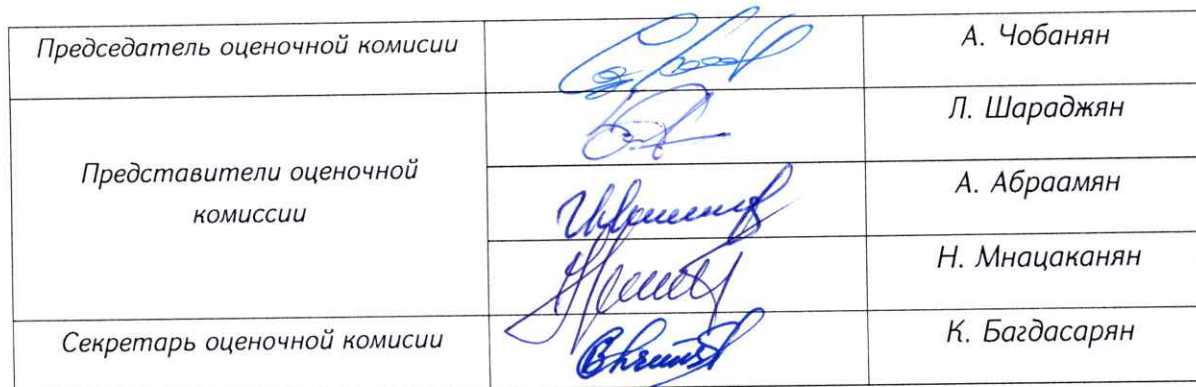 Председатель оценочной комисии
А. Чобанян
Л. Шараджян
Представители оценочной
комиссии
А. Абраамян
Н. Мнацаканян
Секретарь оценочной комисии
К. Багдасарян